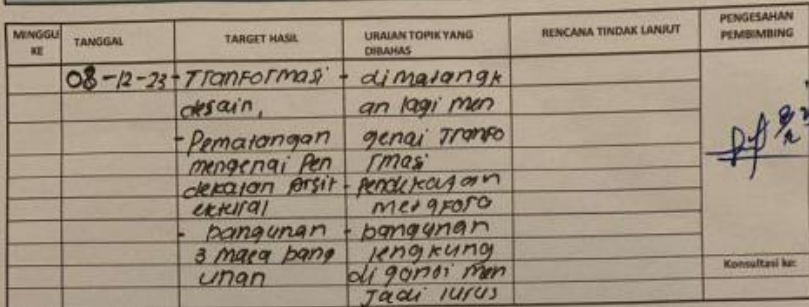 MINGGU KE TANGGAL TARGET HASIL URAIAN TOPIK YANG DIBAHAS RENCANA TINDAK LANJUT PENGESAHAN PEMBIMBING
08-12-23 - Tranformasi - dimatangk
desain, an lagi men
- Pematangan genai Tranfo
mengenai Pen rmasi
dekatan Arsit - Pendekatan
ektural metafora
- bangunan - bangunan
3 masa bang lengkung
unan di ganti men
Jadi lurus
Konsultasi ke: